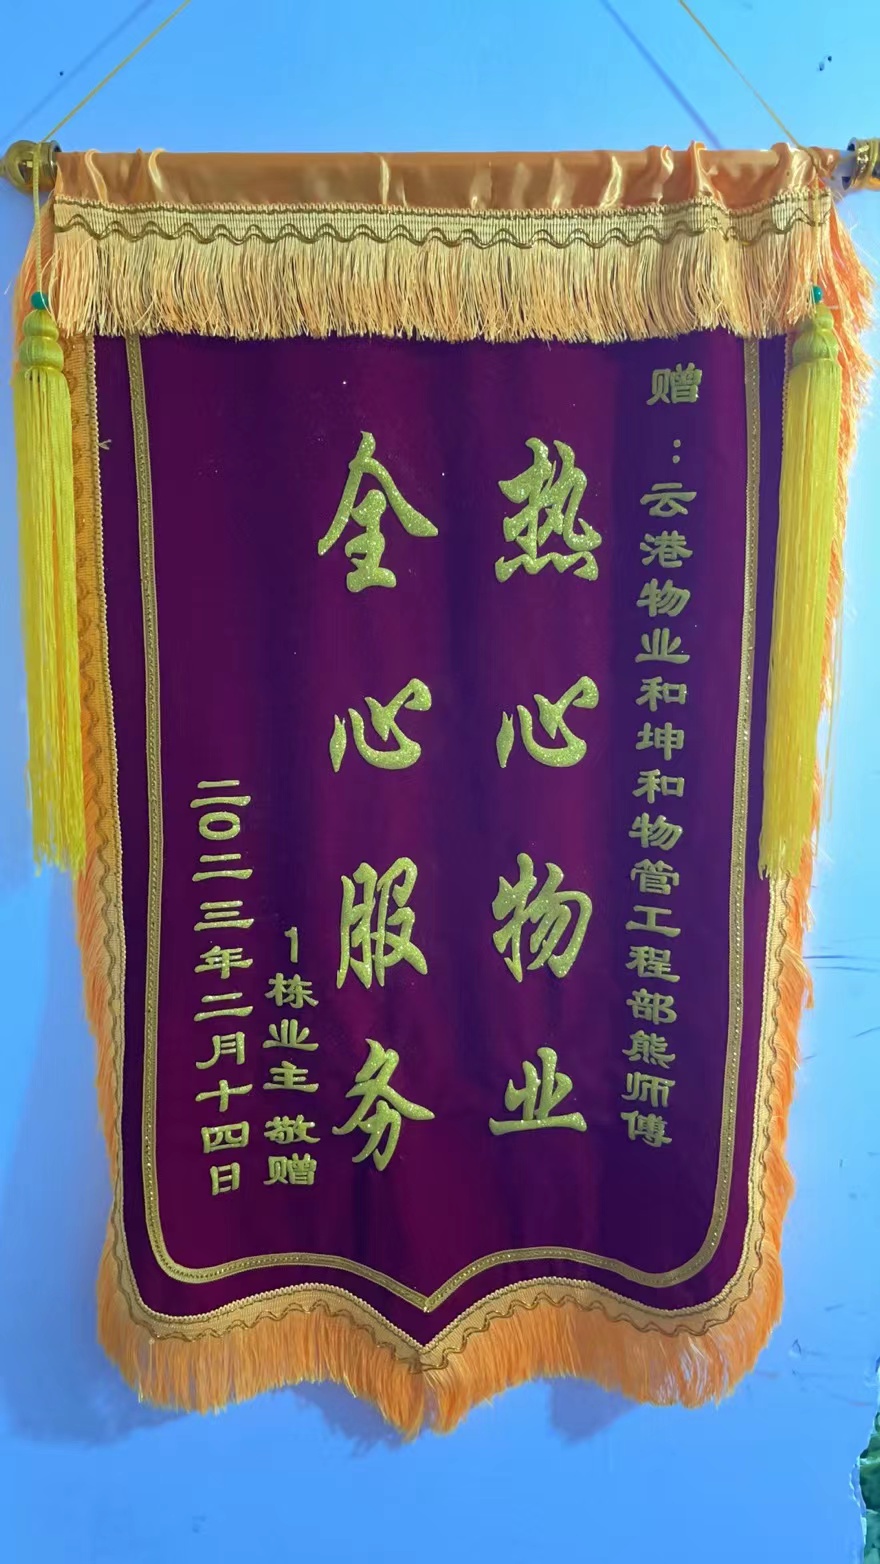 赠：云港物业和坤和物管工程部熊师傅
热心物业
全心服务
1栋业主 敬赠
二〇二三年二月十四日